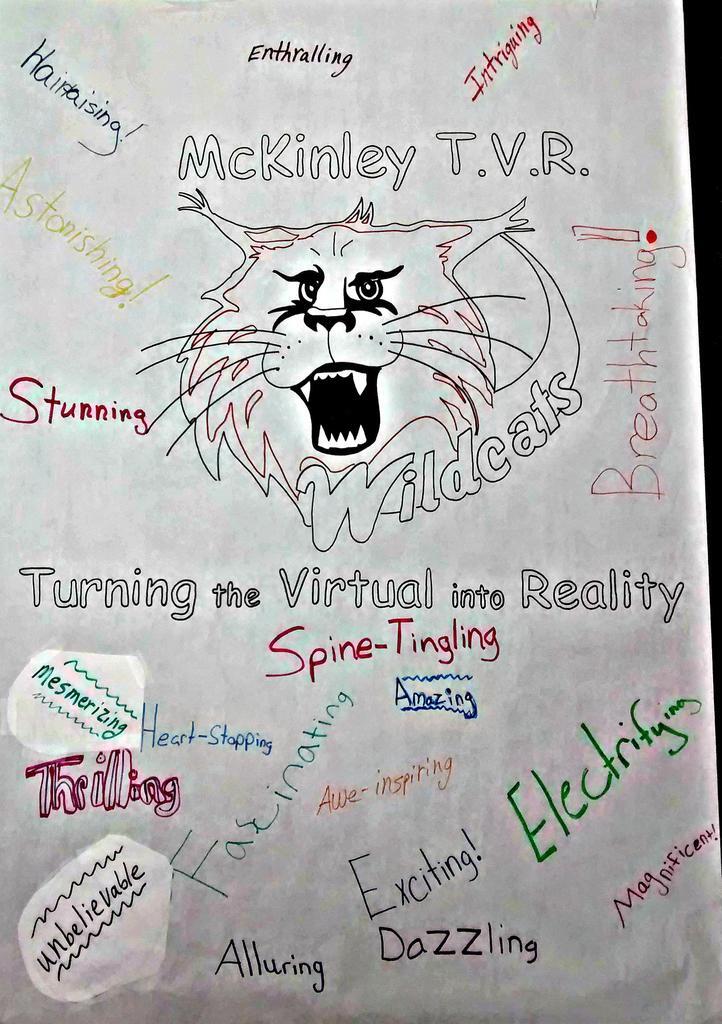 Enthralling
Intriguing
Hairraising!
McKinley T.V.R.
Astonishing!
Breathtaking!
Stunning
Wildcats
Turning the Virtual into Reality
Spine-Tingling
mesmerizing
Amazing
Heart-Stopping
Electrifying
Thrilling
Facinating
Awe-inspiring
Magnificent!
Exciting!
unbelievable
Dazzling
Alluring